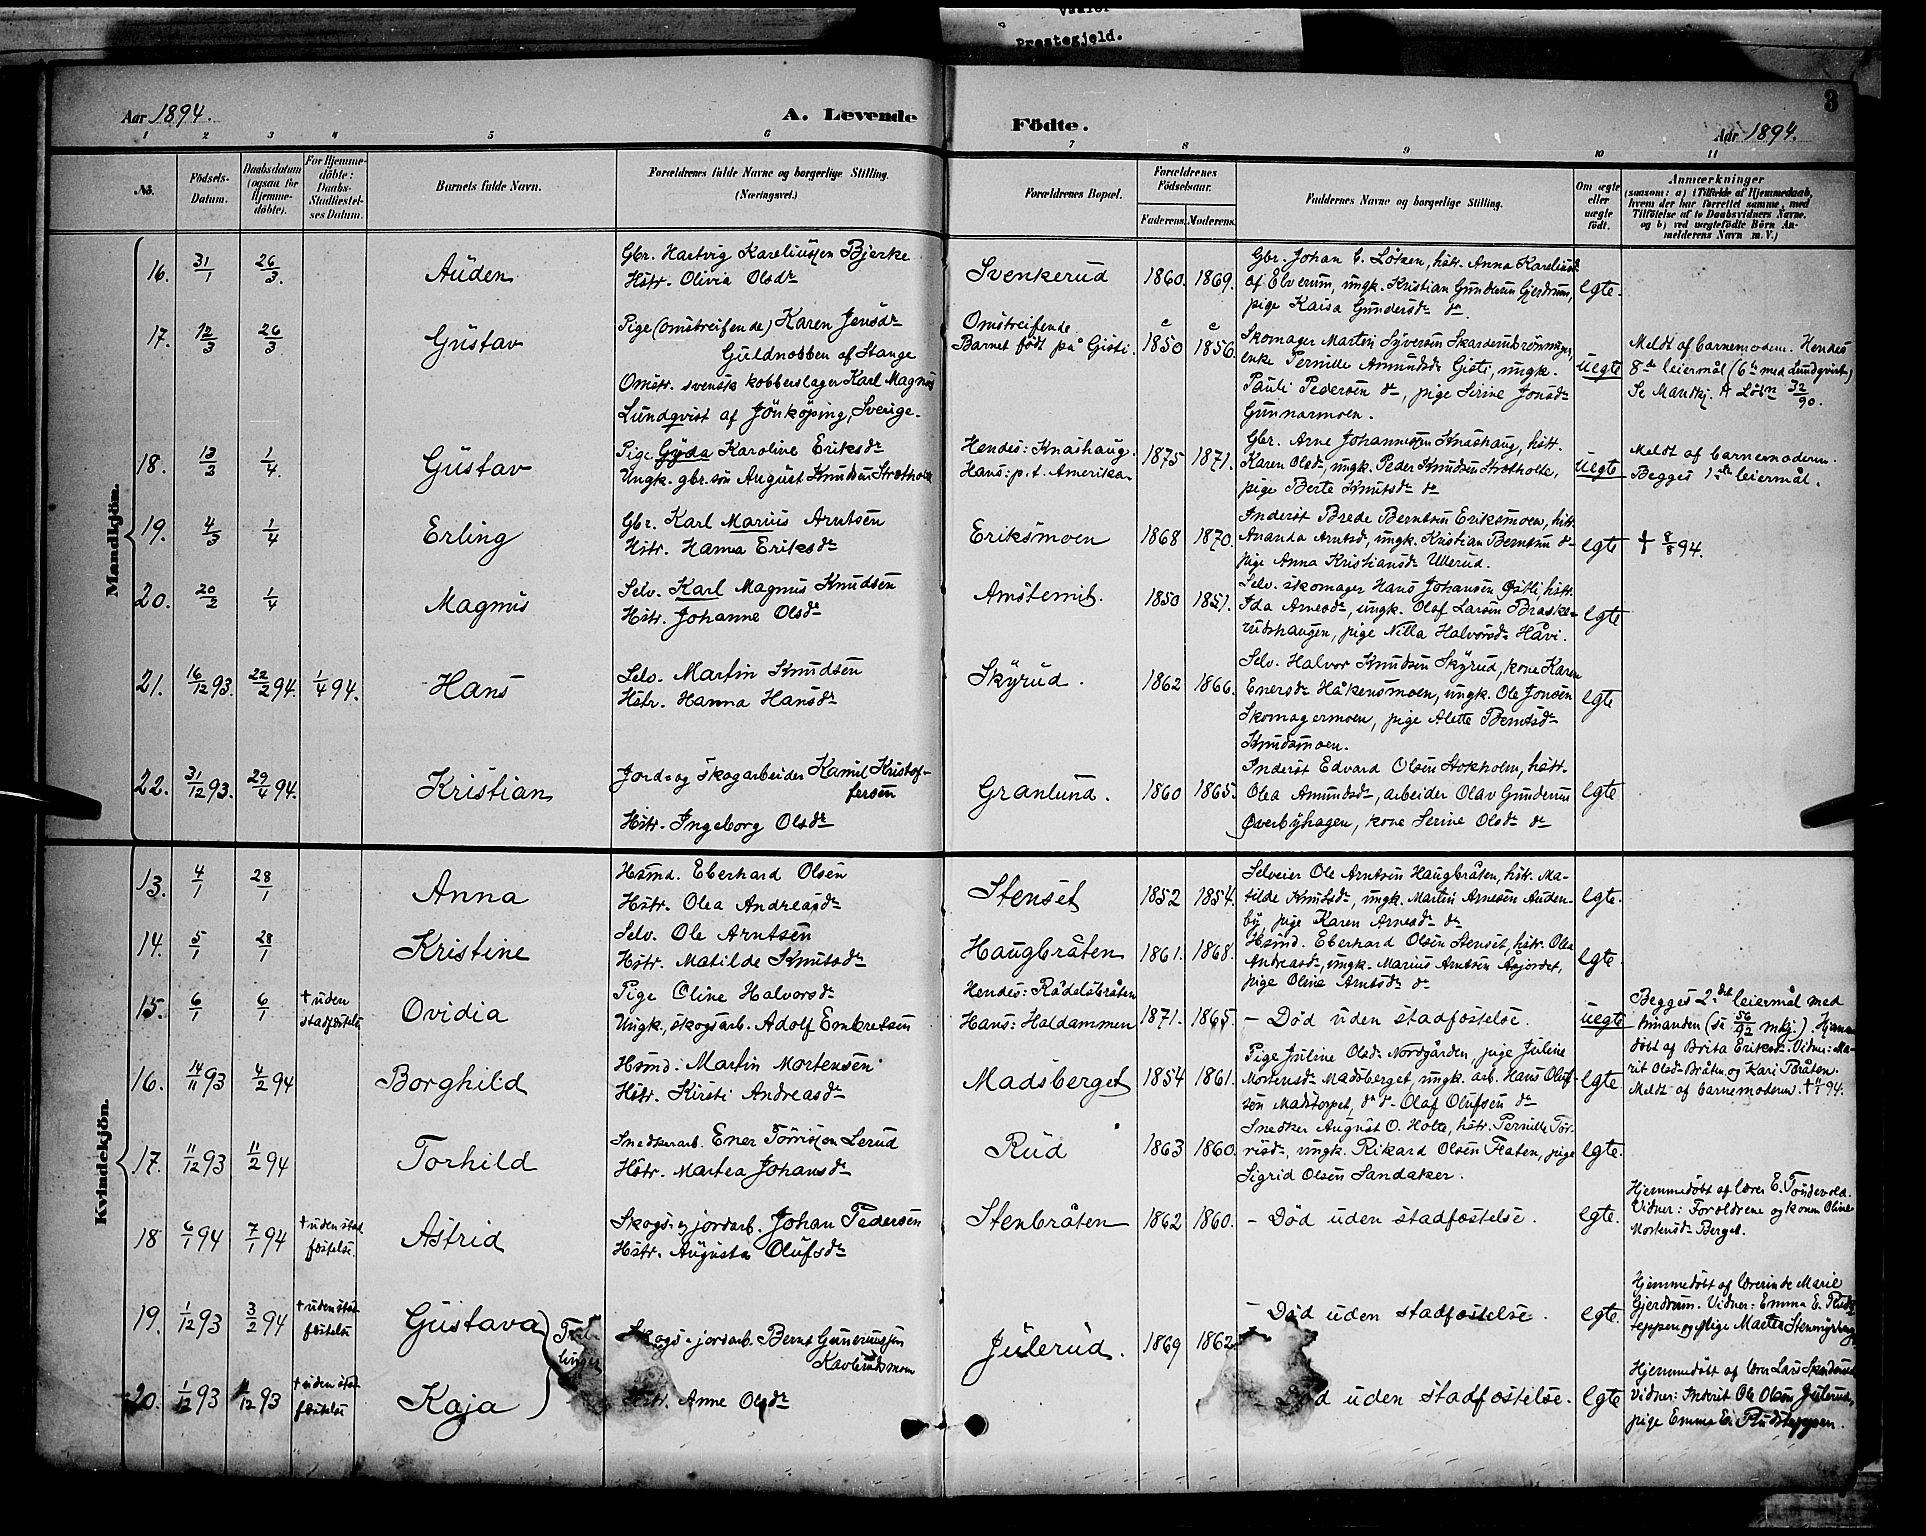 Vaaler
Prestegjeld.
3
Aar 1894.
A. Levende
Födte.
Aar 1894.
1 2 3 4 5 6 7 8 9 10 11
No.
Födsels-Datum.
Daabsdatum (ogsaa for Hjemme-döbte).
For Hjemme-döbte: Daabs-Stadfæstel-ses Datum.
Barnets fulde Navn.
Forældrenes fulde Navne og borgerlige Stilling.
(Næringsvei.)
Forældrenes Bopæl.
Forældrenes Födselsaar.
Faderens. Moderens.
Faddernes Navne og borgerlige Stilling.
Om ægte eller uægte födt.
Anmærkninger
(saasom: a) i Tilfælde af Hjemmedaab, hvem der har forrettet samme, med Tilföielse af to Daabsvidners Navne. og b) ved uægtefödte Börn An-melderens Navn m. V.)
Mandkjön.
16. 31/1 26/3. Auden
Gbr. Hartvig Kareliussen Bjerke
Hstr. Olivia Olsdr
Svenkerud 1860. 1869.
Gbr. Johan C. Löken, hstr. Anna Kareliusdr
af Elverum, ungk. Kristian Gundersen Gjerdrum,
pige Kaisa Gundersdr do.
egte.
17. 12/3 26/3 Gustav
Pige (omstreifende) Karen Jensdr
Guldnobben af Stange
Omstr. svensk kobberslager Karl Magnus
Lundqvist af Jönköping, Sverige.
Omstreifende.
Barnet födt på Gisti. c 1850 c 1856.
Skomager Martin Syversen Skarderudsrönningen,
enke Pernille Amundsdr Gisti, ungk.
Pauli Pedersen do, pige Sirine Jonsdr
Gunnarmoen.
uegte
Meldt af barnemodern. Hendes
8de leiermål (6te med Lundqvist)
Se Mandkj. A Löbn 32/90.
18. 13/3 1/4. Gustav
Pige Gyda Karoline Eriksdr
Ungk. gbr.sön August Knudsen Strotholte
Hendes: Knashaug.
Hans: p. t. Amerika. 1875 1871.
Gbr. Arne Johannessen Knashaug, hstr.
Karen Olsdr, ungk. Peder Knudsen Strotholte,
pige Berte Knutsdr do
uegte
Meldt af barnemodern.
Begges 1ste leiermål.
19. 4/3 1/4 Erling
Gbr. Karl Marius Arntsen
Hstr. Hanna Eriksdr
Eriksmoen 1868 1870.
Inderst Brede Berntsen Eriksmoen, hstr.
Ananda Arntsdr, ungk. Kristian Berntsen do
pige Anna Kristiansdr Ullerud.
egte † 8/8 94.
20. 20/2 1/4 Magnus
Selv. Karl Magnus Knudsen
Hstr. Johanne Olsdr
Amstemit. 1850 1851.
Selv. skomager Hans Johansen Gisti, hstr.
Ida Arnesdr, ungk. Olaf Larsen Braske-
rudshaugen, pige Nilla Halvorsdr Håvi.
egte
21. 16/12 93. 22/2 94. 1/4 94. Hans
Selv. Martin Knudsen
Hstr. Hanna Hansdr
Skyrud. 1862 1866.
Selv. Halvor Knudsen Skyrud, kone Karen
Enersdr Håkensmoen, ungk. Ole Jonsen
Skomagermoen, pige Alette Berntsdr
Knudsmoen.
egte
22. 31/12 93. 29/4 94. Kristian
Jord- og skogarbeider Kamil Kristof-
fersen
Hstr. Ingeborg Olsdr
Granlund. 1860 1865.
Inderst Edvard Olsen Stokholm, hstr.
Olea Amundsdr, arbeider Olav Gundersen
Överbyhagen, kone Serine Olsdr do
egte
Kvindekjön.
13. 4/1 28/1 Anna
Hsmd. Eberhard Olsen
Hstr. Olea Andreasdr
Stenset 1852 1854.
Selveier Ole Arntsen Haugbråten, hstr. Ma-
tilde Knutsdr, ungk. Martin Arnesen Auden-
by pige Karen Arnesdr do
egte.
14. 5/1 28/1 Kristine
Selv. Ole Arntsen
Hstr. Matilde Knutsdr
Haugbråten 1861. 1868.
Hsmd. Eberhard Olsen Stenset, hstr. Olea
Andreasdr, ungk. Marius Arntsen Åsjordet,
pige Oline Arntsdr do
egte.
15. 6/1 6/1 † uden stadfæstelse Ovidia
Pige Oline Halvorsdr
Ungk., skogsarb. Adolf Embretsen
Hendes: Rådelsbråten
Hans: Haldammen 1871. 1865.
- Död uden stadfæstelse.
uegte
Begges 2det leiermål med
hinanden (se 56/92 mkj.). Hjemme
döbt af Brita Eriksdr. Vidner: Ma-
rit Olsdr Bråten og Kari Bråten.
Meldt af barnemodern. † 94.
16. 14/11 93 4/2 94 Borghild
Hsmd. Martin Mortensen
Hstr. Kirsti Andreasdr
Madsberget 1854 1861.
Pige Juline Olsdr Nordgården, pige Juline
Mortensdr Madsberget, ungk. arb. Hans Oluf-
sen Madstorpet, do do Olaf Olufsen do
egte
17. 11/12 93 11/2 94 Torhild
Snedkerarb. Ener Torrissen Lerud
Hstr. Martea Johansdr
Rud 1863 1860.
Snedker August O. Holte, hstr. Pernille Tor-
risdr, ungk. Rikard Olsen Flaten, pige
Sigrid Olsen Sandaker.
egte.
18 6/1 94 7/1 94 † uden stad fæstelse. Astrid
Skogs- og jordarb. Johan Pedersen
Hstr. Augusta Olufsdr
Stenbråten 1862 1860.
- Död uden stadfæstelse.
egte.
Hjemmedöbt af lærer E. Tondevold.
Vidner: Forældrene og konen Oline
Mortensdr Berget.
19. 1/12 93 3/2 94 † uden stad fæstelse Gustava
Skogs- og jordarb. Bernt Gunerussen
Kavlerudsmoen
Julerud. 1869 1862
- Död uden stadfæstelse.
egte.
Hjemmedöbt af lærerinde Marie
Gjerdrum. Vidner: Emma E. Rud-
teppen og pige Martea Stenmyrhaug
20. 1/12 93 /12 93 † uden stad fæstelse Kaja
Hstr. Anne Olsdr
Död uden stadfæstelse.
egte
Hjemmedöbt af lærer Lars Skarderud.
Vidner: Inderst Ole Olsen Julerud,
pige Emma E. Rudsteppen.